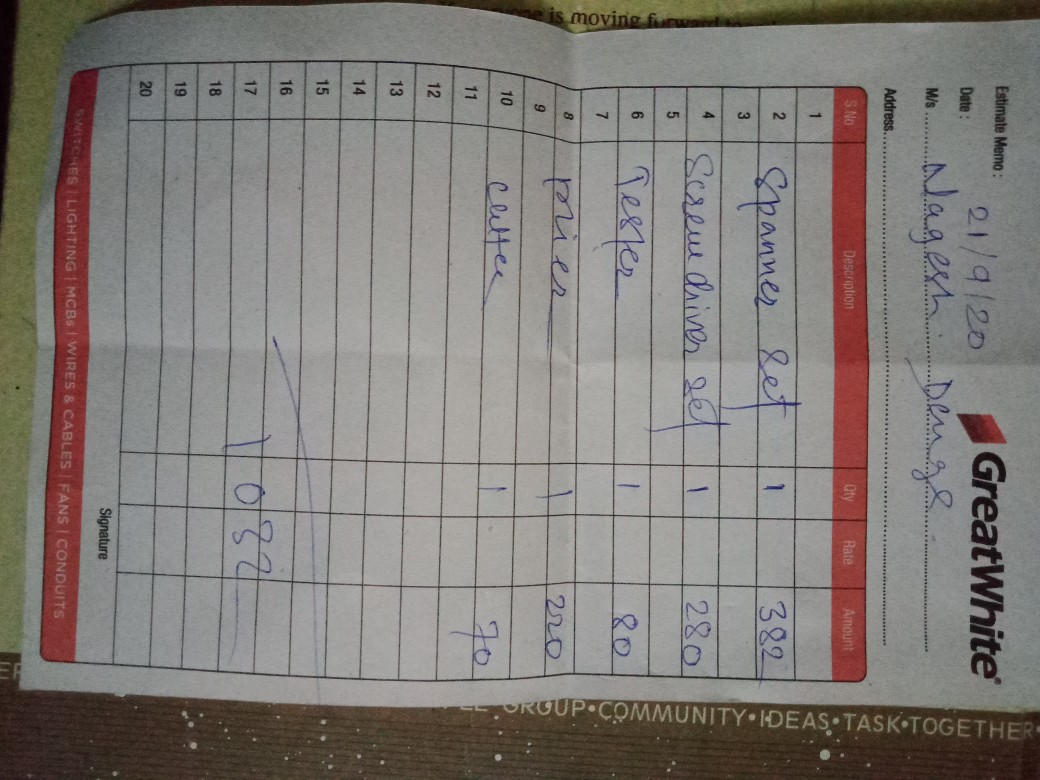 is moving forward
GreatWhite®
Estimate Memo :
Date : 21/9/20
M/s Nagesh Denge
Address
S.No Description Qty Rate Amount
1
2 Spanner Set 1 382
3
4 Screwdriver set 1 280
5
6 Tester 1 80
7
8 Plier 1 220
9
10 Cutter 1 70
11
12
13
14
15
16
17 1032
18
19
20
Signature
SWITCHES | LIGHTING | MCBs | WIRES & CABLES | FANS | CONDUITS
GROUP•COMMUNITY•IDEAS•TASK•TOGETHER•